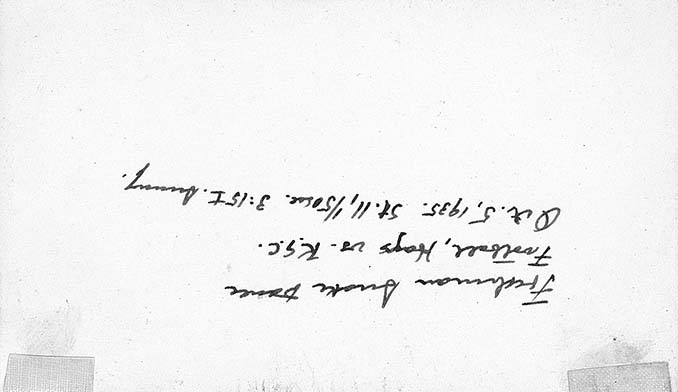 Freshman Snake Dance
Football, Hays vs. K.S.C.
Oct. 5, 1935. St. 11, 1/50 sec. 3:15 I. Sunny.